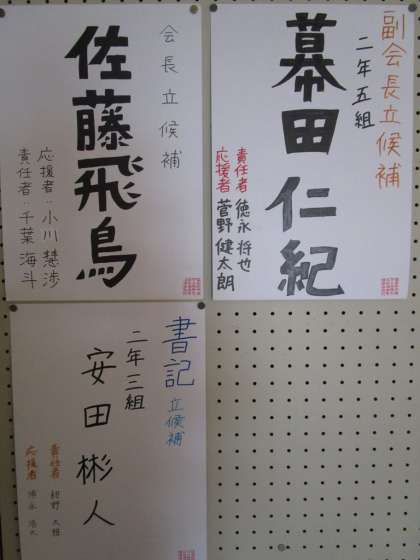 副会長立候補
二年五組
幕田仁紀
責任者 徳永将也
応援者 菅野健太朗
会長立候補
佐藤飛鳥
応援者：小川慧渉
責任者：千葉海斗
書記
立候補
二年三組
安田彬人
責任者 紺野大樹
応援者